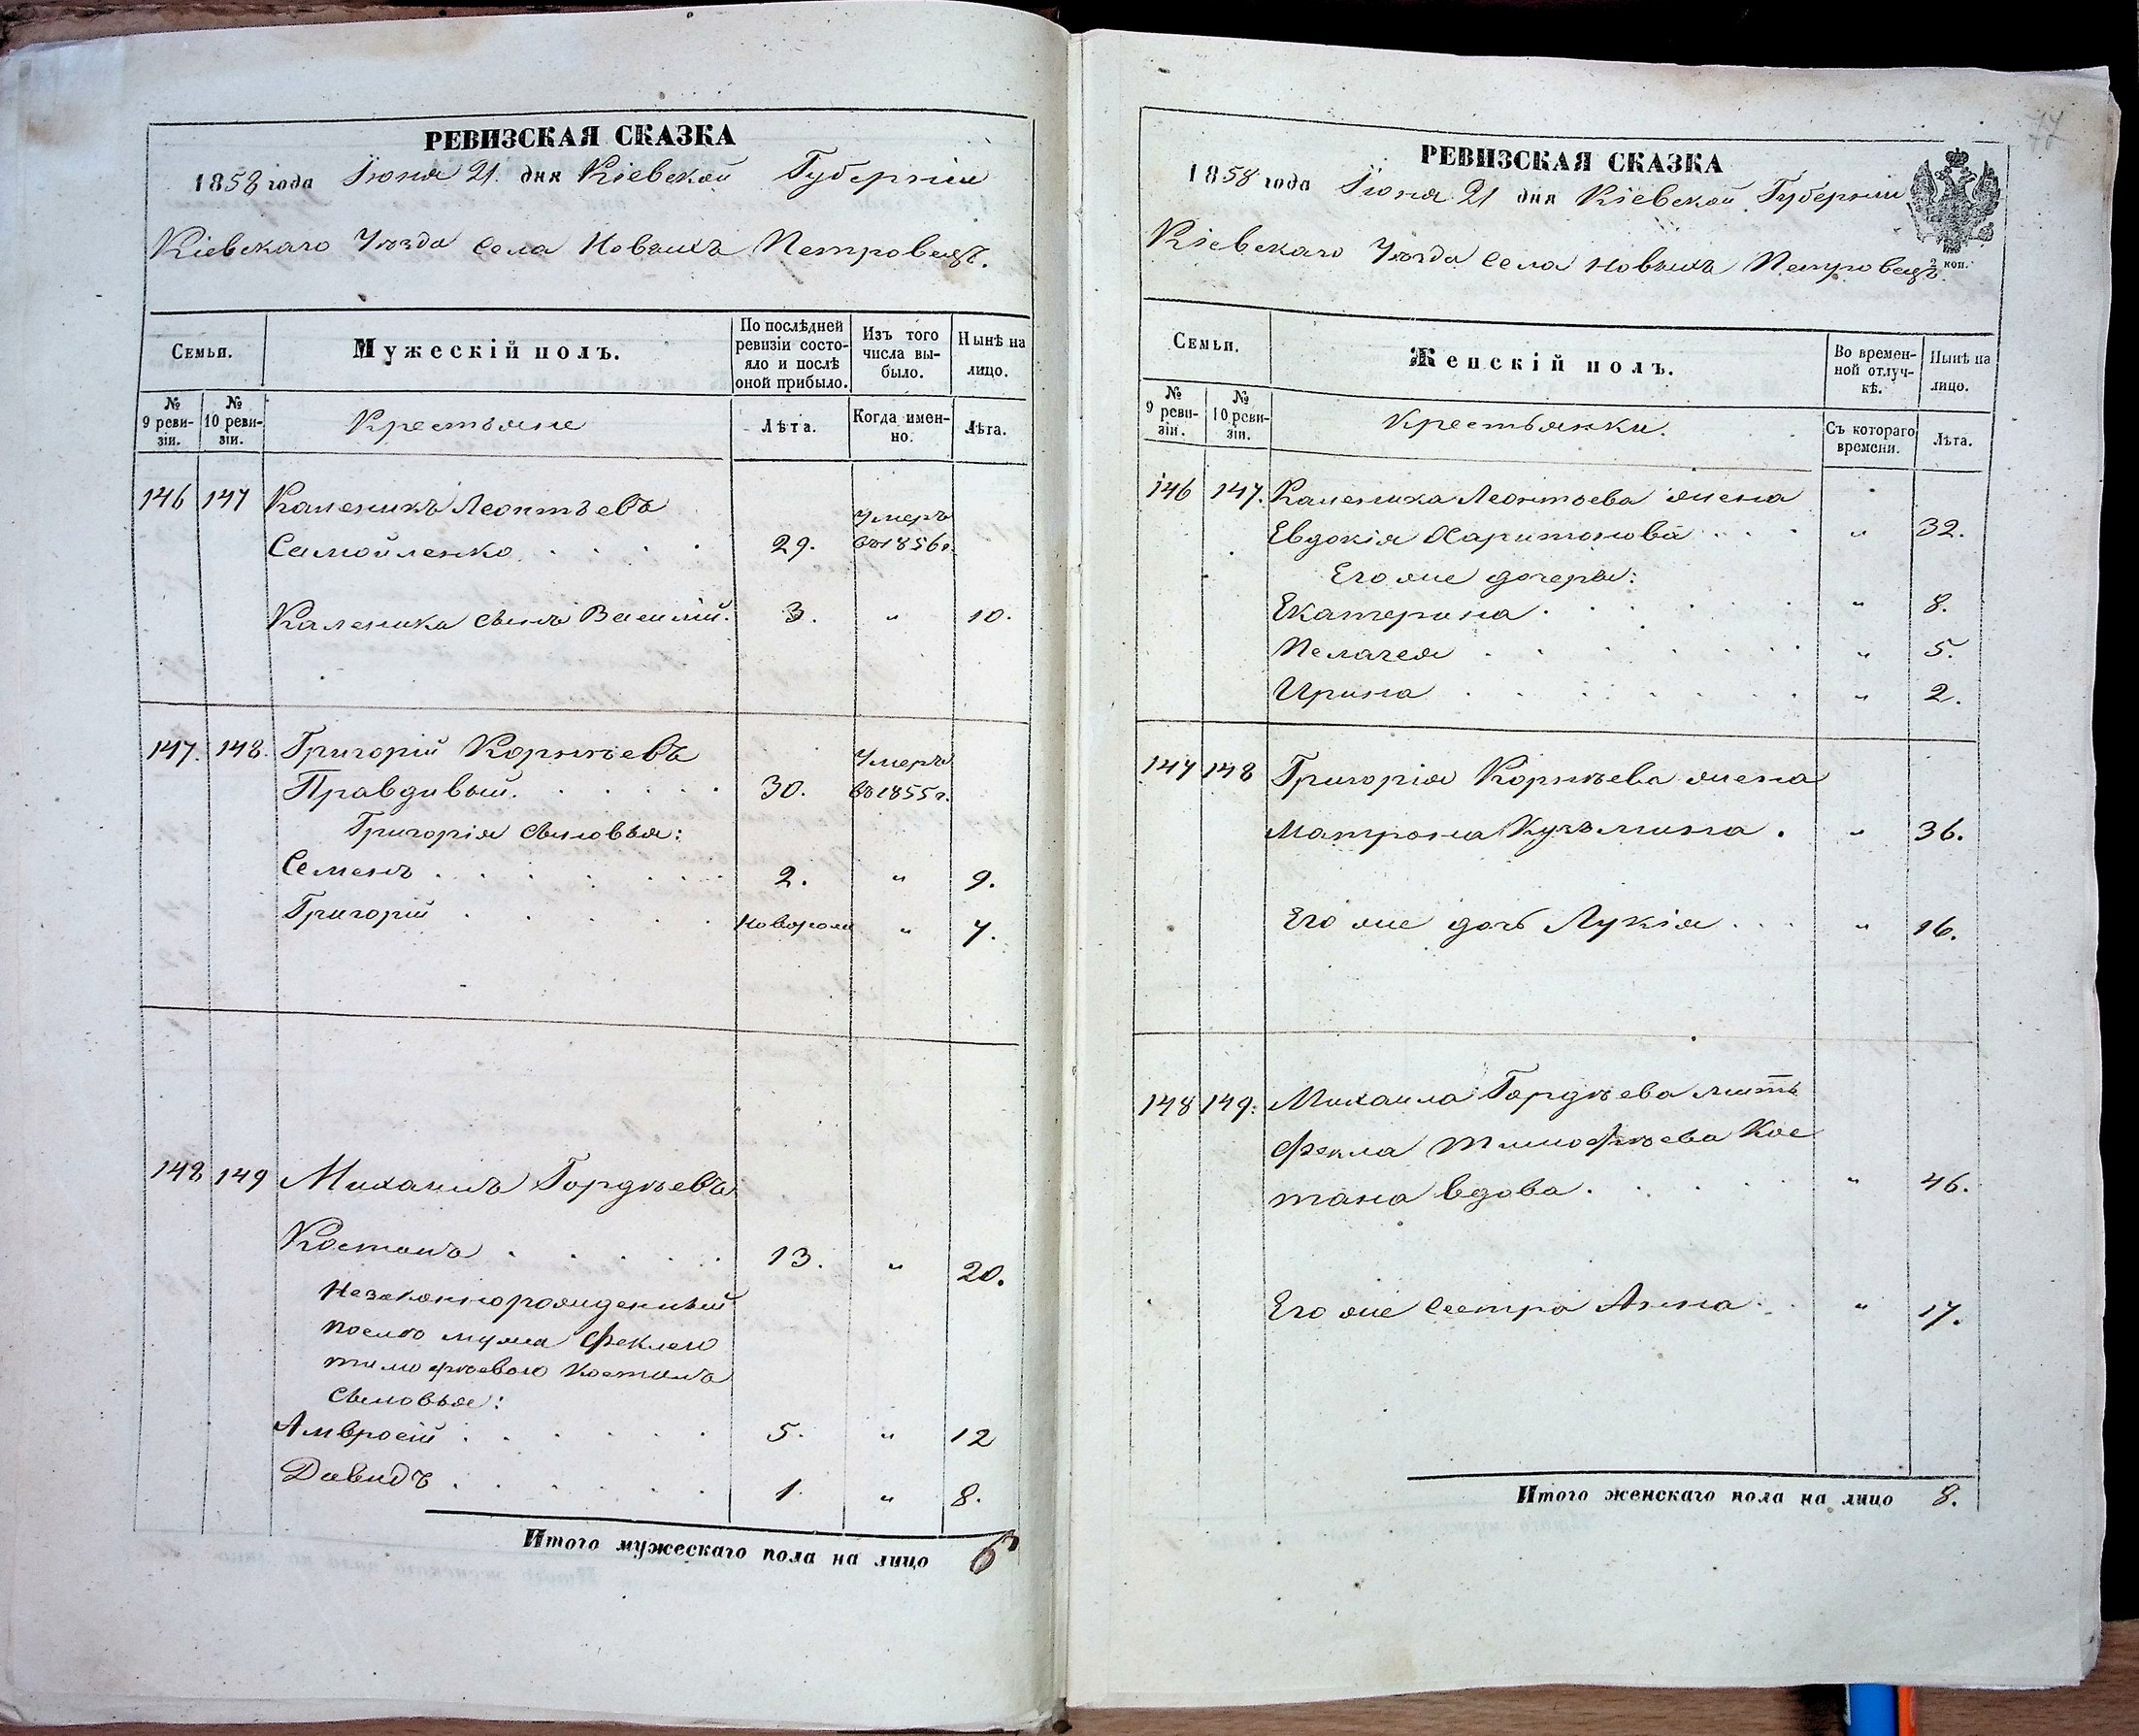 РЕВИЗСКАЯ СКАЗКА
1858 года Іюня 21. дня Кіевской Губерніи
Кіевскаго Уѣзда Села Новыхъ Петровецъ.
Семьи.
Мужескій полъ.
По послѣдней ревизіи состо-
яло и послѣ оной прибыло.
Изъ того числа вы-
было.
Нынѣ на лицо.
№ 9 реви-
зіи.
№ 10 реви-
зіи.
Крестьяне
Лѣта.
Когда имен-
но.
Лѣта.
146 147 Каленикъ Леонтьевъ Умеръ
Самойленко 29. въ 1856 г.
Каленика сынъ Василій. 3. " 10.
147. 148. Григорій Корнѣевъ Умеръ
Правдивый. 30. въ 1855 г.
Григорія сыновья:
Семенъ 2. " 9.
Григорій новорожд " 7.
148 149 Михаилъ Гордѣевъ
Костанъ 13. " 20.
Незаконнорожденный
после мужа Феклею
тимофѣевою Костана
сыновья:
Амвросій 5. " 12
Давидъ 1. " 8.
Итого мужескаго пола на лицо 6
77
РЕВИЗСКАЯ СКАЗКА
1858 года Іюня 21 дня Кіевской Губерніи
Кіевскаго Уѣзда Села Новыхъ Петровецъ.
2 коп.
Семьи.
Женскій полъ.
Во времен-
ной отлуч-
кѣ.
Нынѣ на лицо.
№ 9 реви-
зіи.
№ 10 реви-
зіи.
Крестьянки.
Съ котораго времени.
Лѣта.
146 147. Каленика Леонтьева жена
Евдокія Харитонова " 32.
Его же дочери:
Екатерина " 8.
Пелагея " 5.
Ирина " 2.
147 148 Григорія Корнѣева жена
Матрона Кузьмина. " 36.
Его же дочь Лукія " 16.
148 149. Михаила Гордѣева мать
Фекла Тимофѣева Кос
тана вдова. " 46.
Его же сестра Анна " 17.
Итого женскаго пола на лицо 8.